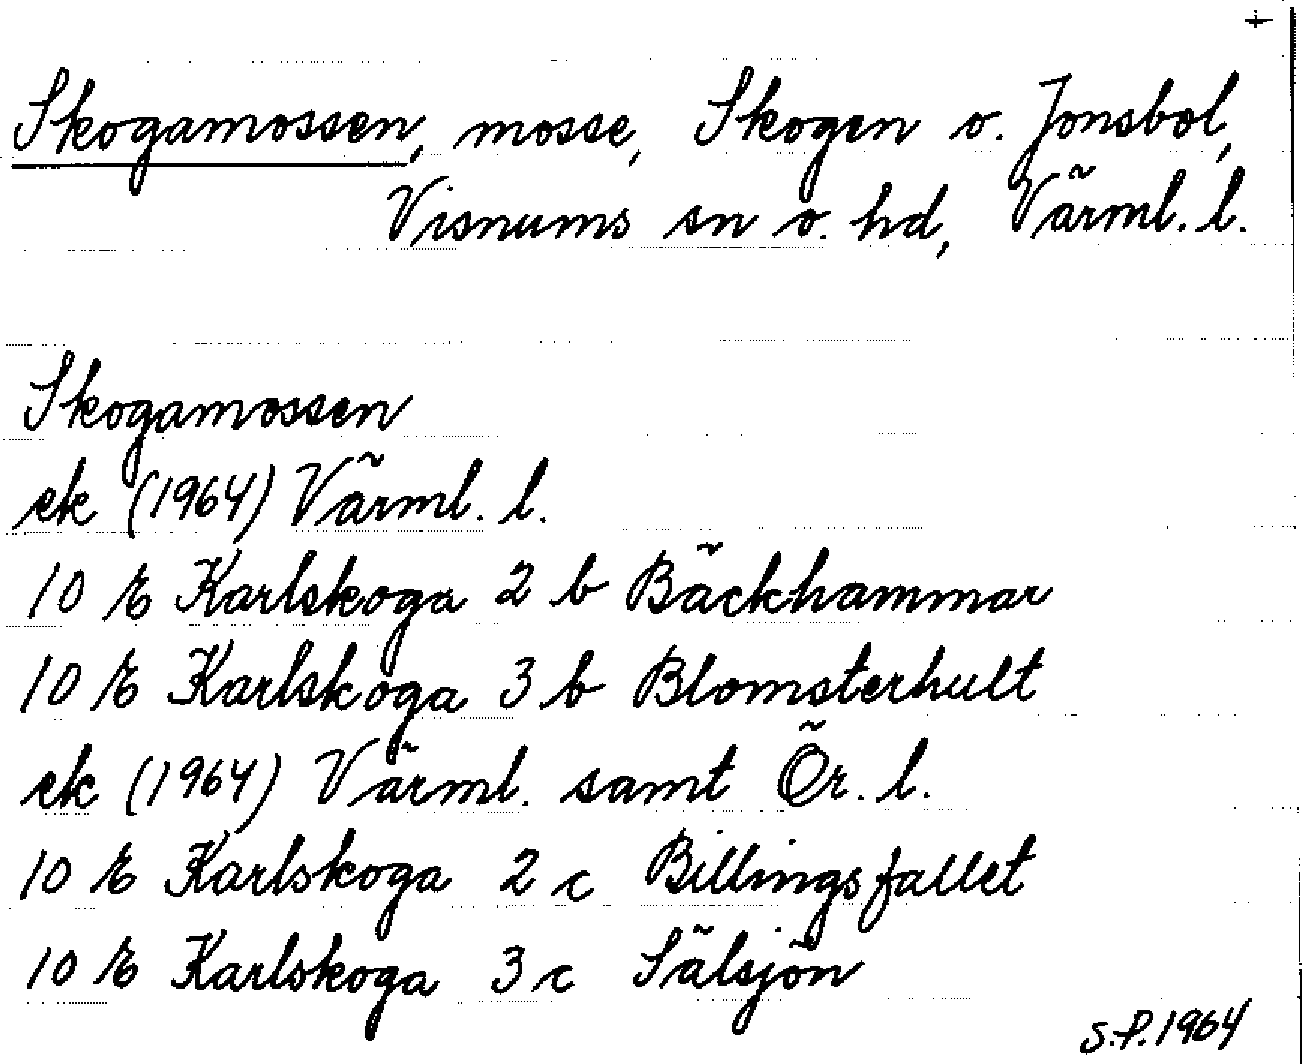 +
Skogamossen, mosse, Skogen o. Jonsbol,
Visnums sn o. hd, Värml. l.
Skogamossen
ek (1964) Värml. l.
10 E Karlskoga 2 b Bäckhammar
10 E Karlskoga 3 b Blomsterhult
ek (1964) Värml. samt Ör. l.
10 E Karlskoga 2 c Billingsfallet
10 E Karlskoga 3 c Sälsjön
S.P. 1964